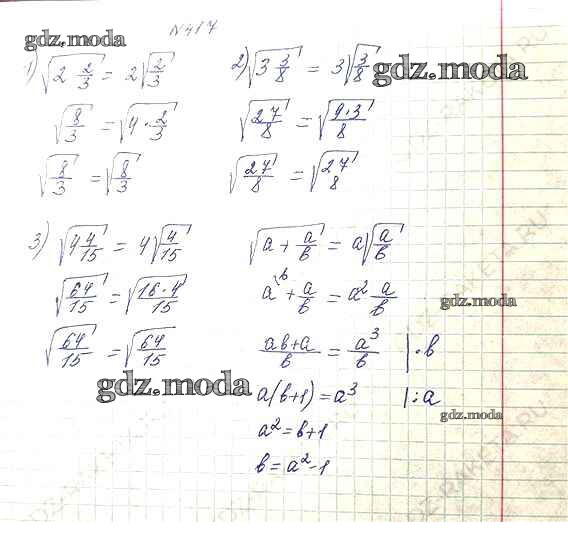 N417
gdz.moda
1) √(2 2/3) = 2√(2/3)
√(8/3) = √(4·2/3)
√(8/3) = √(8/3)
2) √(3 3/8) = 3√(3/8)
gdz.moda
√(27/8) = √(9·3/8)
√(27/8) = √(27/8)
3) √(4 4/15) = 4√(4/15)
√(64/15) = √(16·4/15)
√(64/15) = √(64/15)
gdz.moda
√(a + a/b) = a√(a/b)
a\b + a/b = a² a/b
gdz.moda
(ab+a)/b = a³/b |·b
a(b+1) = a³ |:a
gdz.moda
a² = b+1
b = a²-1
GDZ-RAKETA.RU